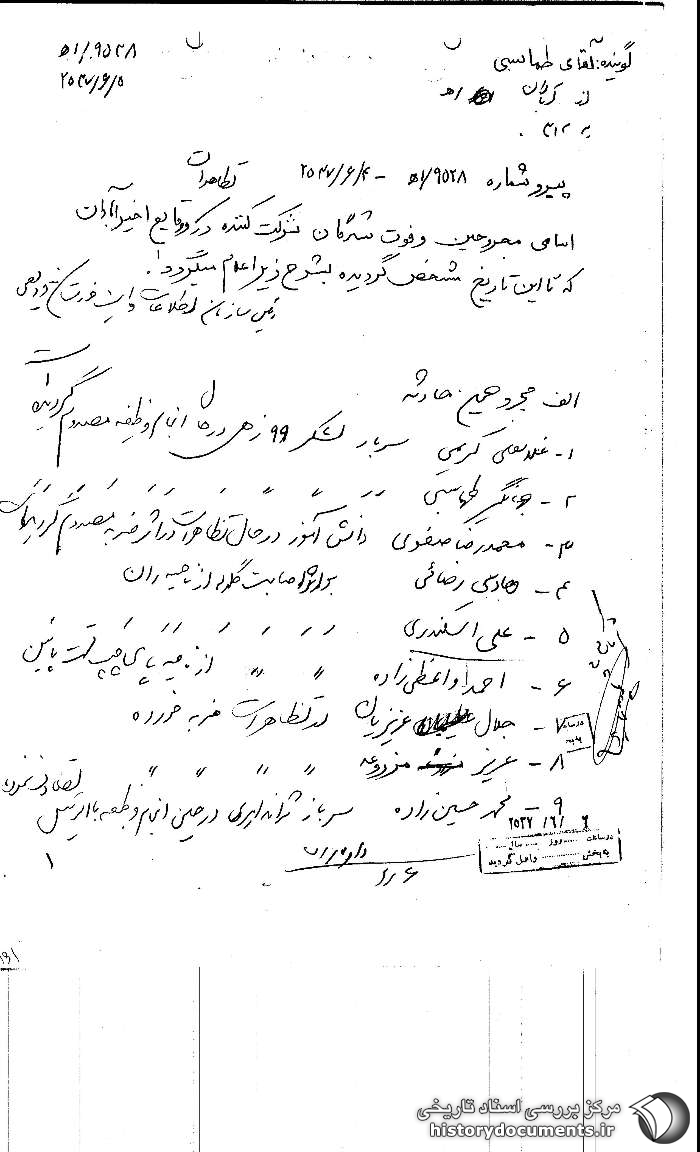 گوینده: آقای طهماسبی
۵۱/۹۵۲۸
از آبادان ۵۱
۲۵۳۷/۶/۵
به ۳۱۲
پیرو شماره ۵۱/۹۵۲۸ - ۲۵۳۷/۶/۴
اسامی مجروحین و فوت شدگان شرکت کننده در تظاهرات و وقایع اخیر آبادان
که تا این تاریخ مشخص گردیده بشرح زیر اعلام میگردد.
رئیس سازمان اطلاعات و امنیت خوزستان
الف مجروحین حادثه
۱- غلامعلی کریمی سرباز لشکر ۹۲ زرهی در حال انجام وظیفه مصدوم گردیده است
۲- جهانگیر طهماسبی " " " " " " "
۳- محمدرضا صفوی دانش آموز در حال تظاهرات در اثر ضربه مصدوم گردیده
۴- رضائی اصابت گلوله از ناحیه ران
۵- علی اسکندری " " " " " "
۶- احمد واعظی زاده " " از ناحیه پای چپ قسمت پائین
۷- جلال عزیزیان در تظاهرات ضربه خورده
۸- عزیز مزروعه " " " "
۹- محمد حسین زاده سرباز ژاندارمری در حین انجام وظیفه با اتومبیل تصادف نموده
۲۵۳۷/۶/۶
در ساعت روز سال
به بخش واصل گردید
۱
۶/۵
مرکز بررسی اسناد تاریخی
historydocuments.ir